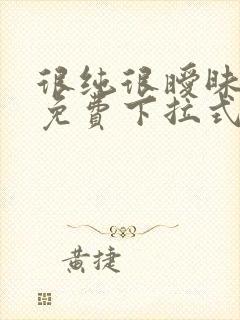 很纯很暧昧
免費下拉式
黄捷